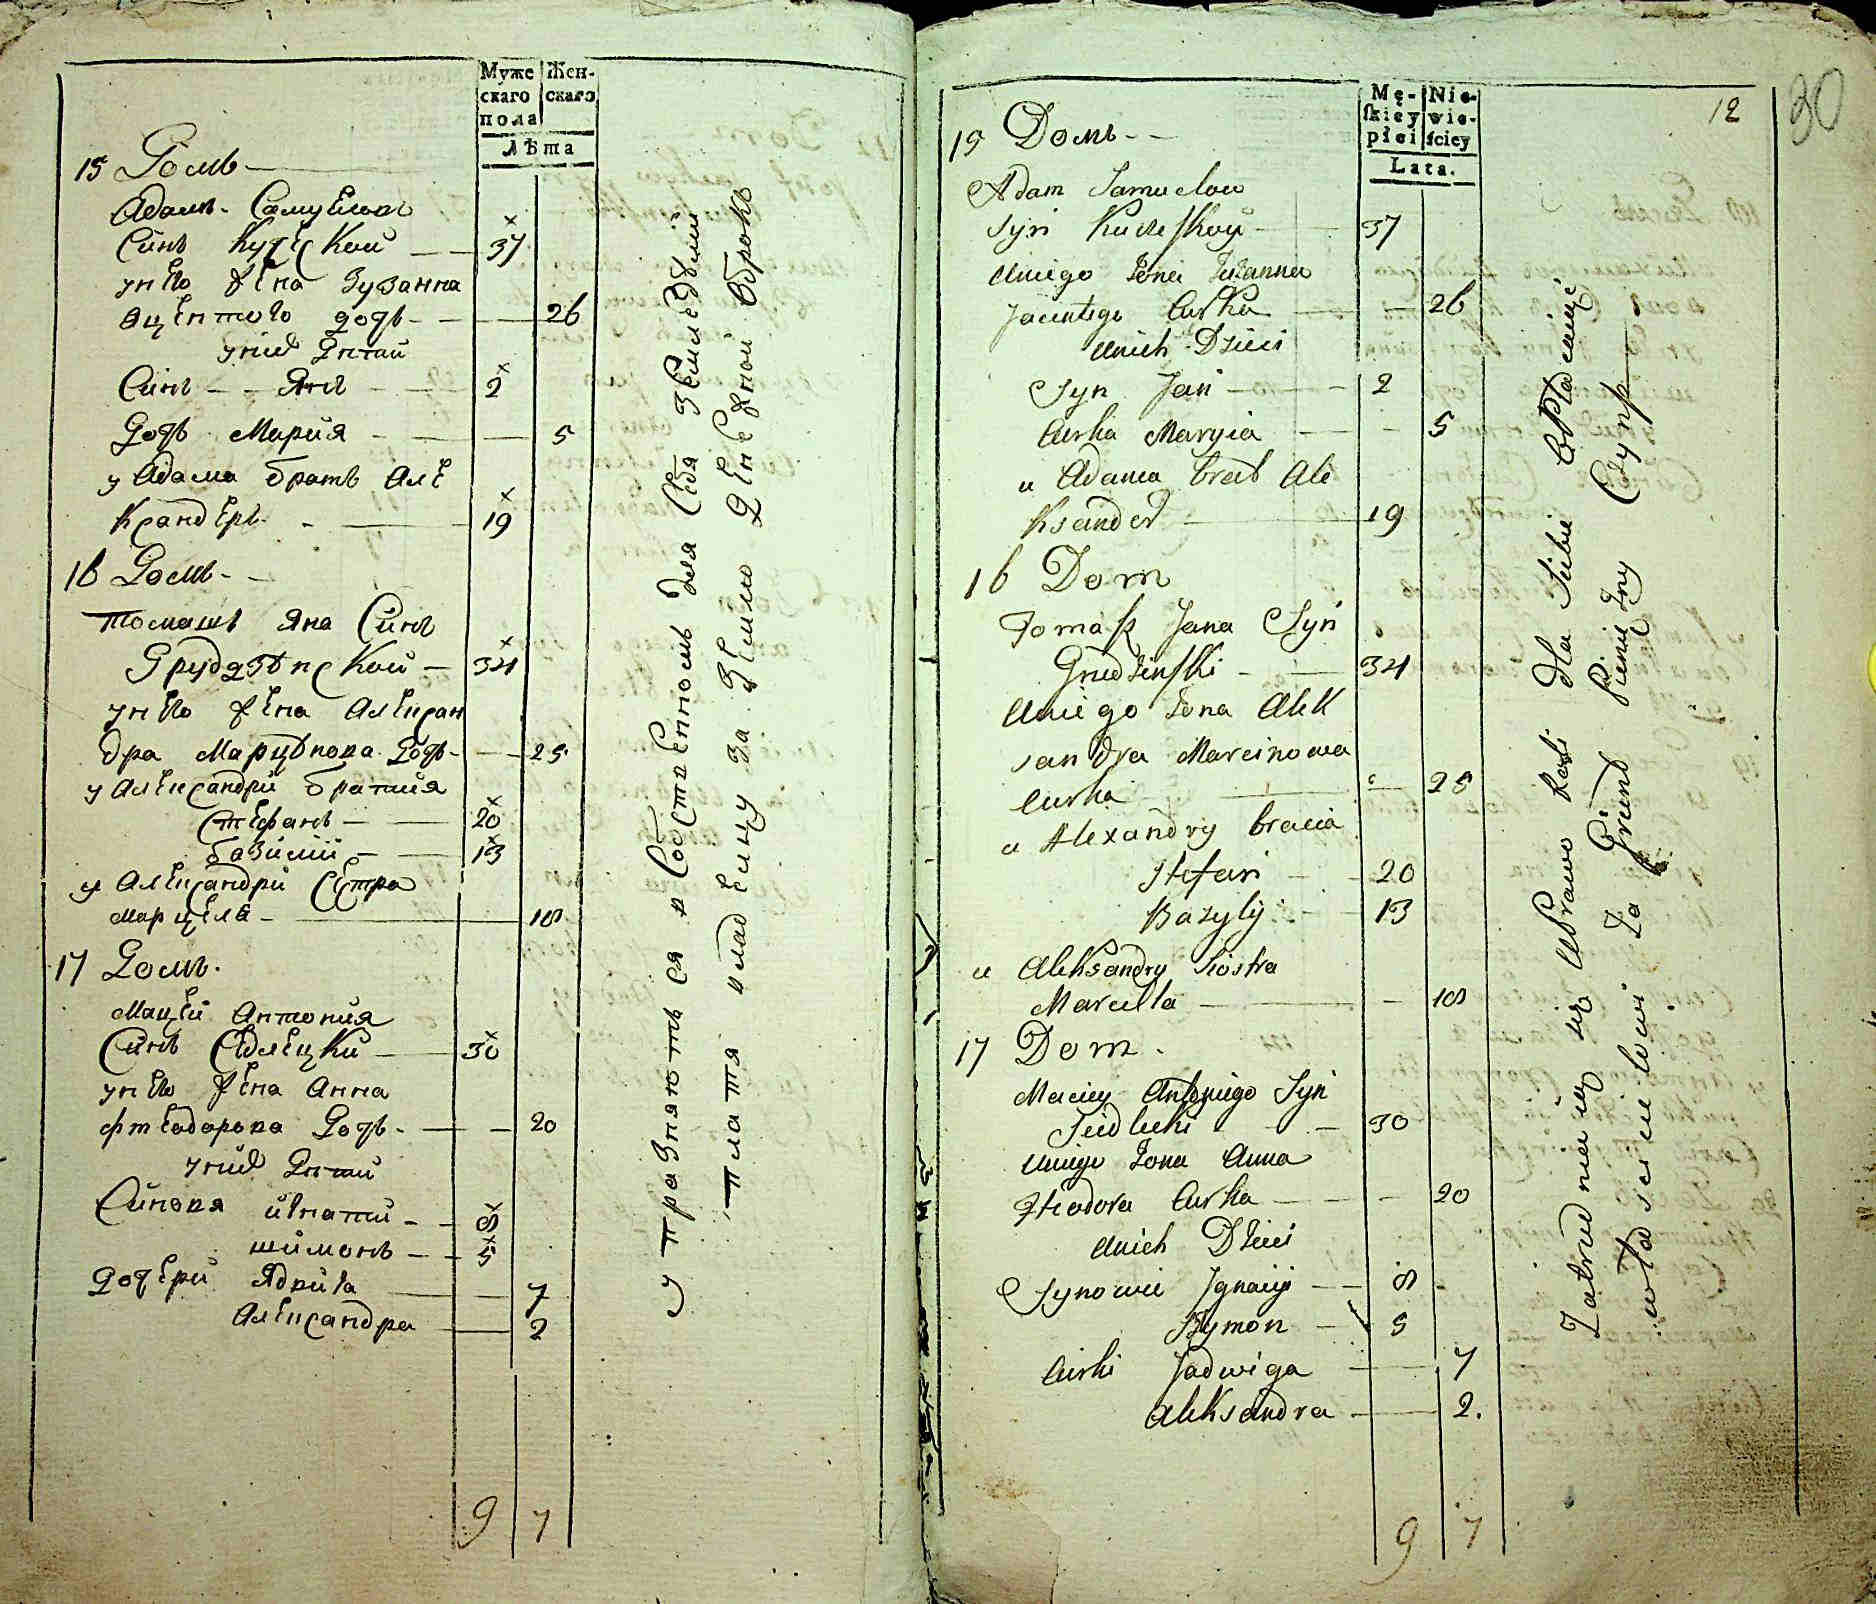 Муже
скаго
пола
Жен-
скаго
Лѣта
15 Домъ
Адамъ Самуеловъ
Синъ Куческой 37
у нево жена Зузанна
Яцентово дочь 26
у нихъ Дитей
Синъ Янъ 2
Дочь Мария 5
у Адама братъ Але
Ксандеръ 19
16 Домъ
Томашъ Яна Синъ
Грудзѣнской 34
у нево жена Алексан
дра Марцѣнова Дочь 25
у Александри братия
Стефанъ 20
базилий 13
у Александри Сестра
Марцеля 18
17 Домъ
Мацей Антония
Синъ Седлецки 30
у нево жена Анна
Фтеодорова Дочь 20
у нихъ Дитей
Синовя игнатий 8
шимонъ 5
дочери Ядвига 7
Александра 2
9 7
упразняются в Собственность для Себя Земледѣлий
платя владелцу за Землю Денежной Оброкъ
12
30
Mę-
skiey
płci
Nie-
wie-
sciey
Lata.
15 Домъ
Adam Samuelow
Syn Kuczeskoy 37
u niego żona Zuzanna
Jacentego Curka 26
u nich Dzieci
Syn Jan 2
Curka Maryia 5
u Adama brat Ale
Ksander 19
16 Dom
Tomasz Jana Syn
Grudzinski 34
u niego żona Alek
sandra Marcinowa
Curka 25
u Alexandry bracia
Stefan 20
Bazyly 13
u Aleksandry Siostra
Marcella 18
17 Dom.
Maciey Antoniego Syn
Siedlecki 30
u niego żona Anna
Fteodora Curka 20
u nich Dzieci
Synowie Ignacy 8
Szymon 5
Curki Jadwiga 7
Aleksandra 2.
9 7
Zatrudniaią się uprawą Roli dla Siebie Opłacaiąć
włascicielowi Za Grunt Pieniężny Czynsz